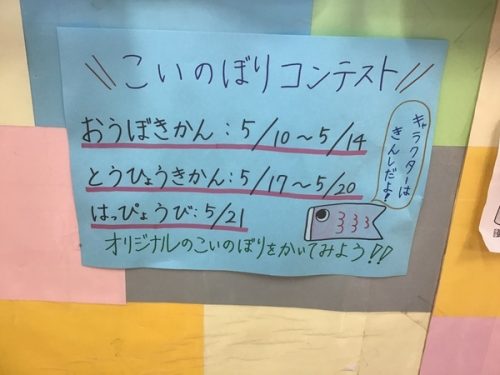 \\こいのぼりコンテスト//
おうぼきかん:5/10～5/14
とうひょうきかん:5/17～5/20
はっぴょうび:5/21
オリジナルのこいのぼりをかいてみよう!!
キャラクターは
きんしだよ!